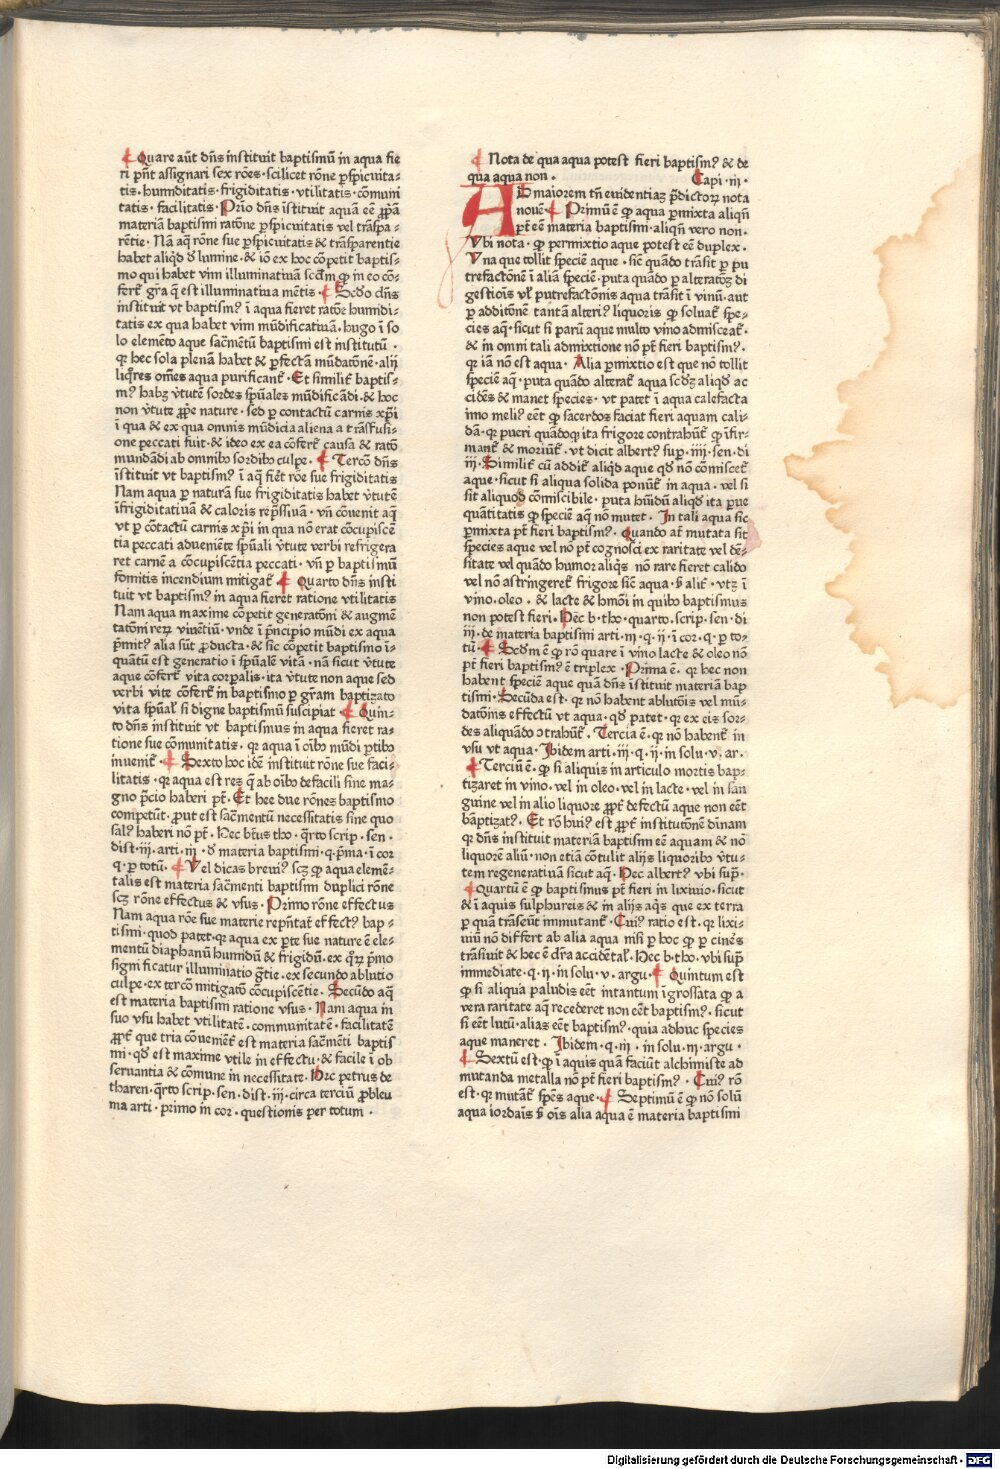 Quare aūt dn̄s instituit baptismū in aqua fie
ri pn̄t assignari sex rōes · scilicet rōne ꝑspicuita-
tis · humiditatis · frigiditatis · vtilitatis · cōmuni
tatis · facilitatis · Prīo dn̄s īstituit aquā eē ꝓpīā
materiā baptismi ratōne ꝑspicuitatis vel trāspa-
rētie · Nā aq̄ rōne sue ꝑspicuitatis & trāsparentie
habet aliqd̄ đ lumine · & iō ex hoc cōpetit baptis-
mo qui habet vim illuminatiuā scd̄m ꝙ in eo cō-
fert᷑ gr̄a q̄ est illuminatiua mētis · Scd̄o dn̄s
instituit vt baptism⁹ ī aqua fieret ratōe humidi-
tatis ex qua habet vim mūdificatiuā · hugo ī so
lo elemēto aque sacm̄entū baptismi est institutū ·
qr hec sola plenā habet & ꝑfectā mūdatōnē · alij
liqr̄es om̄es aqua purificant᷑ · Et similit᷑ baptis-
m⁹ habꝫ v̄tutē sordes spūales mūdificādi · & hoc
non v̄tute ꝓpe nature · sed ꝑ contactū carnis xp̄i
ī qua & ex qua omnis mūdicia aliena a trāsfusi-
one peccati fuit · & ideo ex ea cōfert᷑ causa & ratō
mundādi ab omnibo sordibo culpe · Tercō dn̄s
īstituit vt baptism⁹ ī aq̄ fiēt rōe sue frigiditatis
Nam aqua ꝑ naturā sue frigiditatis habet v̄tutē
īfrigiditatiuā & caloris rep̄ssiuā · vn̄ cōuenit aq̄
vt ꝑ cōtactū carnis xp̄i in qua nō erat cōcupiscē
tia peccati adueniēte spūali v̄tute verbi refrigera
ret carnē a cōcupiscētia peccati · vn̄ ꝑ baptismū
fomitis incendium mitigat᷑ · Quarto dn̄s insti
tuit vt baptism⁹ in aqua fieret ratione vtilitatis
Nam aqua maxime cōpetit generatōni & augmē
tatōni reꝝ viuētiū · vnde ī pr̄ncipio mūdi ex aqua
pr̄mit⁹ alia sūt ꝓducta · & sic cōpetit baptismo ī-
quātū est generatio ī spūalē vitā · nā sicut v̄tute
aque cōfert᷑ vita corꝑalis · ita v̄tute non aque sed
verbi vite cōfert᷑ in baptismo ꝑ gr̄am baptizato
vita spūal᷑ si digne baptismū suscipiat · Quin-
to dn̄s instituit vt baptismus in aqua fieret ra-
tione sue cōmunitatis · qr aqua ī oībo mūdi ꝑtibo
inuenit᷑ · Sexto hoc idē instituit rōne sue faci-
litatis · qr aqua est res q̄ ab oībo defacili sine ma-
gno pr̄cio haberi pt᷑ · Et hee due rōnes baptismo
competūt · ꝓut est sacm̄entū necessitatis sine quo
sal⁹ haberi nō pt᷑ · Hec bt̄us tho · qr̄to scrip · sen ·
dist · iij · arti · iij · đ materia baptismi · q · pr̄ma · ī cor
q · ꝑ totū · Vel dicas breui⁹ scꝫ ꝙ aqua elemē-
talis est materia sacm̄enti baptism duplici rōne
scꝫ rōne effectus & vsus · Primo rōne effectus
Nam aqua rōe sue materie repn̄tat᷑ effect⁹ bap-
tismi · quod patet · qr aqua ex ꝑte sue nature ē ele-
mentū diaphanū humidū & frigidū · ex qꝝ pr̄mo
significatur illuminatio gr̄tie · ex secundo ablutio
culpe · ex tercō mitigatō cōcupiscētie · Secūdo aq̄
est materia baptismi ratione vsus · Nam aqua in
suo vsu habet vtilitatē · communitatē · facilitatē
ꝓpt᷑ que tria cōueniēt᷑ est materia sacm̄enti baptis
mi · qd̄ est maxime vtile in effectu · & facile ī ob
seruantia & cōmune in necessitate · Hec petrus de
tharen · qr̄to scrip · sen · dist · iij · circa terciū ꝓbleu
ma arti · primo in cor · questionis per totum ·
Nota de qua aqua potest fieri baptism⁹ & de
qua aqua non · Capi · iij ·
AD maiorem tn̄ euidentiaꝫ pr̄dictoꝝ nota
nouē · Primū ē ꝙ aqua ꝑmixta aliqn̄
pt᷑ eē materia baptismi · aliqn̄ vero non ·
Vbi nota · ꝙ permixtio aque potest eē duplex ·
Vna que tollit speciē aque · sic̄ quādo trāsit ꝑ pu
trefactōnē ī aliā speciē · puta quādo ꝑ alteratōꝫ di
gestiōis vl᷑ putrefactōnis aqua trāsit ī vinū · aut
ꝑ additōnē tantā alteri⁹ liquoris ꝙ soluat᷑ spe-
cies aq̄ · sicut si parū aque multo vino admisceat᷑ ·
& in omni tali admixtione nō pt᷑ fieri baptism⁹ ·
qr iā nō est aqua · Alia ꝑmixtio est que nō tollit
speciē aq̄ · puta quādo alterat᷑ aqua scd̄ꝫ aliqd̄ ac
cidēs & manet species · vt patet ī aqua calefacta
imo meli⁹ eēt ꝙ sacerdos faciat fieri aquam cali-
dā · qr pueri quādoqꝫ ita frigore contrahūt᷑ ꝙ īfir-
mant᷑ & moriūt᷑ · vt dicit albert⁹ sup̄ · iiij · sen · di
iij · Similit᷑ cū addit᷑ aliqd̄ aque qd̄ nō cōmiscet᷑
aque · sicut si aliqua solida ponūt᷑ in aqua · vel si
sit aliquod cōmiscibile · puta hūidū aliqd̄ ita ꝑue
quātitatis ꝙ speciē aq̄ nō mutet · In tali aqua sic
ꝑmixta pt᷑ fieri baptism⁹ · Quando at᷑ mutata sit
species aque vel nō pt᷑ cognosci ex raritate vel dē-
sitate vel quādo humor aliqs̄ nō rare fieret calido
vel nō astringeret᷑ frigore sic̄ aqua · ꝟ alit᷑ · vtꝫ ī
vino · oleo · & lacte & hmōi in quibo baptismus
non potest fieri · Hec b · tho · quarto · scrip · sen · di
iij · de materia baptismi arti · iij · q · ij · ī cor · q · ꝑ to-
tū · Scd̄m ē ꝙ rō quare ī vino lacte & oleo nō
pt᷑ fieri baptism⁹ ē triplex · Prima ē · qr hec non
habent speciē aque quā dn̄s īstituit materiā bap
tismi · Secūda est · qr nō habent ablutōis vel mū-
datōnis effectū vt aqua · qd̄ patet · qr ex eis sor-
des aliquādo ꝯtrahūt᷑ · Tercia ē · qr nō habent᷑ in
vsu vt aqua · Ibidem arti · iij · q · ij · in solu · v · ar ·
Terciū ē · ꝙ si aliquis in articulo mortis bap-
tizaret in vino · vel in oleo · vel in lacte · vel in san
guine vel in alio liquore ꝓpt᷑ defectū aque non eēt
baptizat⁹ · Et rō hui⁹ est ꝓpt᷑ institutōnē diuinam
qr dn̄s instituit materiā baptismi eē aquam & nō
liquorē aliū · non etiā cōtulit alijs liquoribo v̄tu-
tem regeneratiuā sicut aq̄ · Hec albert⁹ vbi sup̄ ·
Quartū ē ꝙ baptismus pt᷑ fieri in lixiuio · sicut
& ī aquis sulphureis & in alijs aq̄s que ex terra
ꝑ quā trāseūt immutant᷑ · Cui⁹ ratio est · qr lixi-
uiū nō differt ab alia aqua nisi ꝑ hoc ꝙ ꝑ cinēs
trāsiuit & hec ē dr̄a accidētal᷑ · Hec b · tho · vbi sup̄
immediate · q · ij · in solu · v · argu · Quintum est
ꝙ si aliqua paludis eēt intantum īgrossata ꝙ a
vera raritate aq̄ recederet non eēt baptism⁹ · sicut
si eēt lutū · alias eēt baptism⁹ · quia adhuc species
aque maneret · Ibidem · q · iij · in solu · iij · argu ·
Sextū est · ꝙ ī aquis quā faciūt alchimiste ad
mutanda metalla nō pt᷑ fieri baptism⁹ · Cui⁹ rō
est · qr mutāt᷑ spēs aque · Septimū ē ꝙ nō solū
aqua iordāis ꝟ oīs alia aqua ē materia baptismi
Digitalisierung gefördert durch die Deutsche Forschungsgemeinschaft - DFG